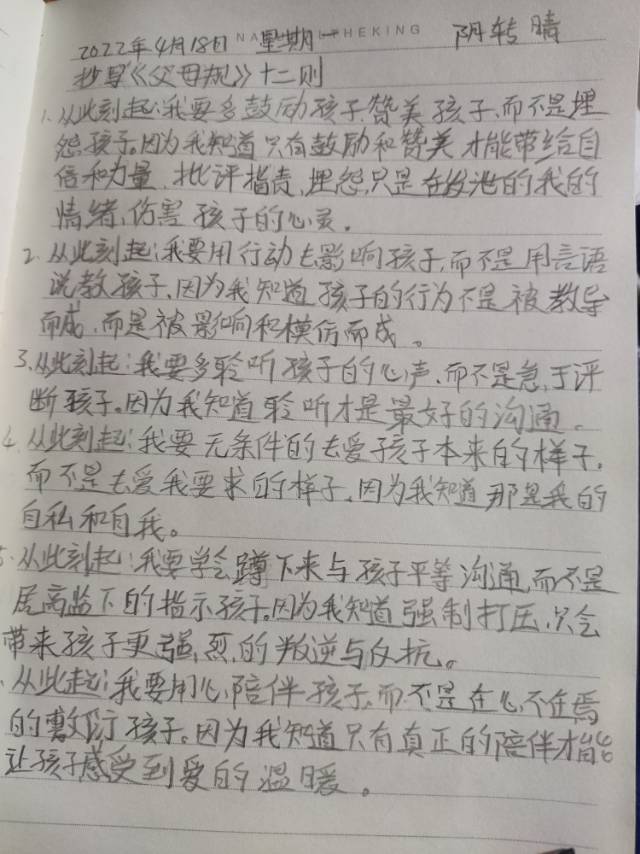 2022年4月18日 星期一 阴转晴
抄写《父母规》十二则
1. 从此刻起:我要多鼓励孩子,赞美孩子,而不是埋
怨孩子。因为我知道只有鼓励和赞美才能带给自
信和力量,批评指责,埋怨,只是在发泄的我的
情绪,伤害孩子的心灵。
2. 从此刻起:我要用行动去影响孩子,而不是用言语
说教孩子,因为我知道孩子的行为不是被教导
而成,而是被影响和模仿而成。
3. 从此刻起:我要多聆听孩子的心声,而不是急于评
断孩子。因为我知道聆听才是最好的沟通。
4. 从此刻起:我要无条件的去爱孩子本来的样子,
而不是去爱我要求的样子,因为我知道那是我的
自私和自我。
5. 从此刻起:我要学会蹲下来与孩子平等沟通,而不是
居高监下的指示孩子。因为我知道强制打压,只会
带来孩子更强烈的叛逆与反抗。
从此起:我要用心陪伴孩子,而不是在心不在焉
的敷衍孩子。因为我知道只有真正的陪伴才能
让孩子感受到爱的温暖。